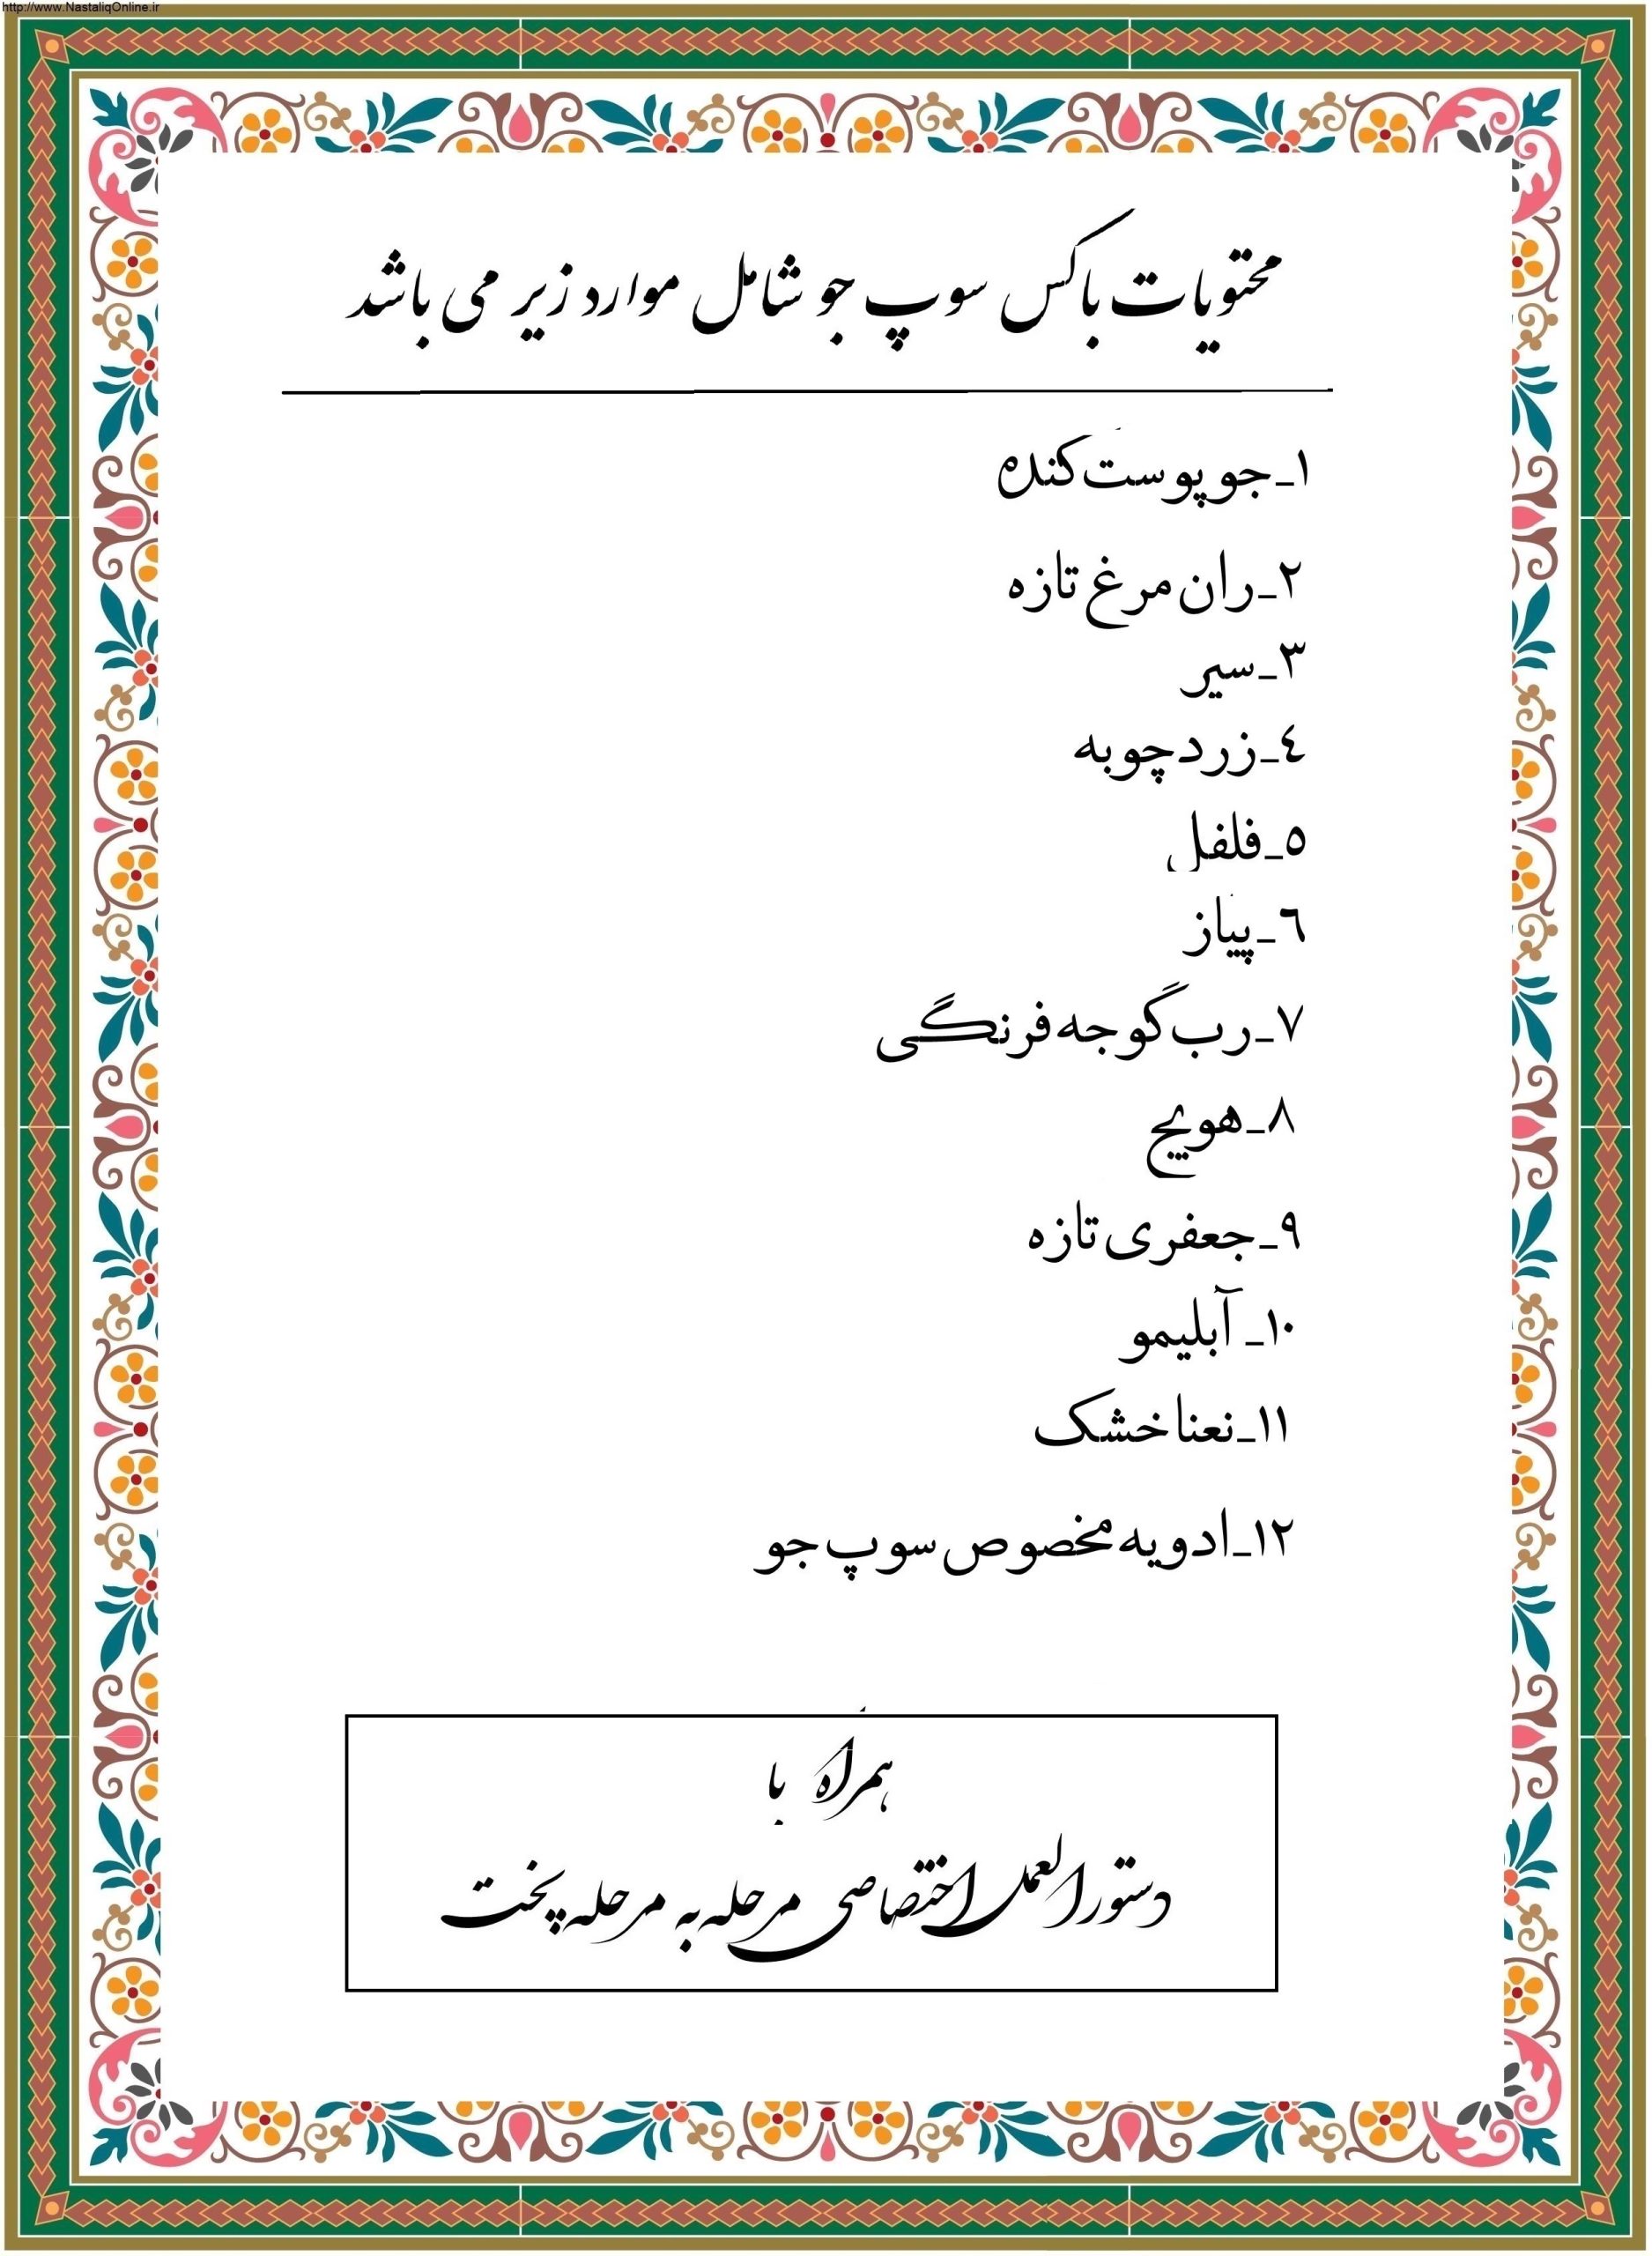 http://www.NastaliqOnline.ir
محتویات باکس سوپ جو شامل موارد زیر می باشد
۱_جو پوست کنده
۲_ران مرغ تازه
۳_سیر
٤_زردچوبه
٥_فلفل
٦_پیاز
۷_رب گوجه فرنگی
۸_هویج
۹_جعفری تازه
۱۰_ آبلیمو
۱۱_نعنا خشک
۱۲_ادویه مخصوص سوپ جو
همراه با
دستورالعمل اختصاصی مرحله به مرحله پخت